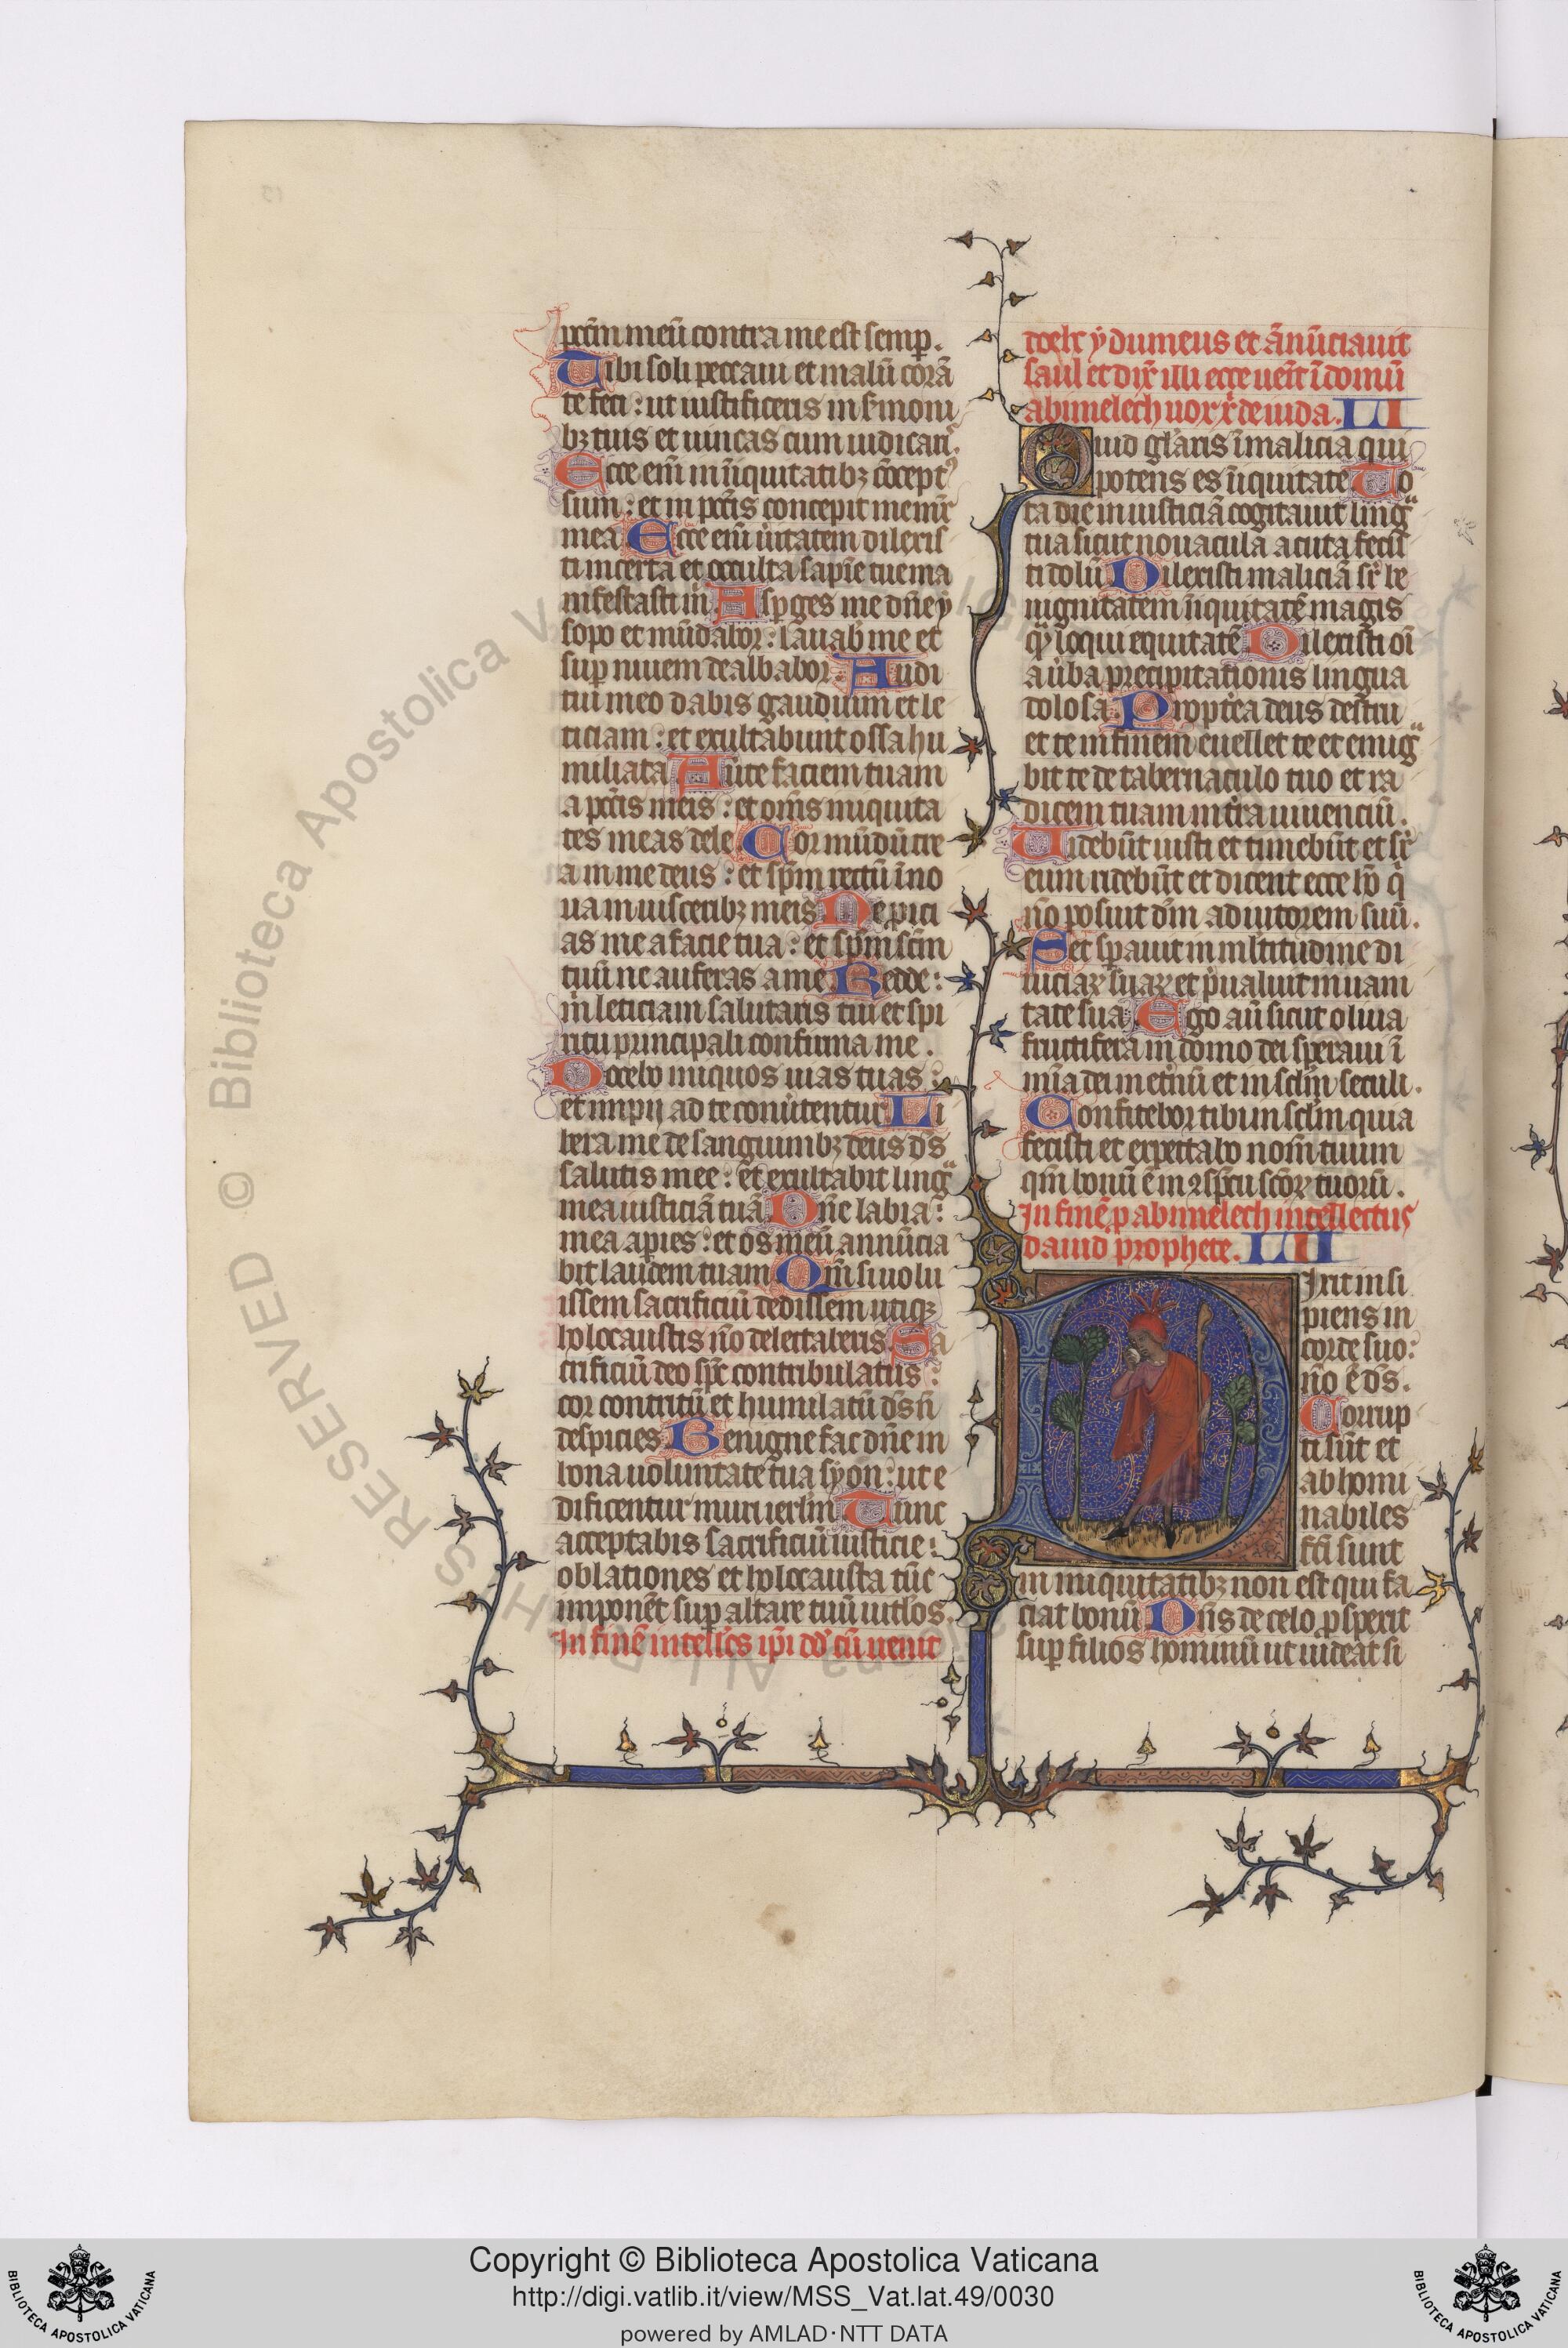 pctm̄ meū contra me est semp.
Tibi soli peccaui et malū corā
te feci : ut iustificeris in s̄moni
bꝫ tuis et uincas cum iudicaris.
Ecce eni m̄ iniquitatibꝫ ɔcept⁹
sum : et in pctis concepit me mr̄
mea Ecce eni ueritatem dilexis
ti incerta et occulta sapiē tue ma
nifestasti m̄ Asꝑges me dn̄e y
sopo et mūdabor : lauab̄ me et
suꝑ niuem dealbabor. Audi
tui meo dabis gaudium et le
ticiam : et exultabunt ossa hu
miliata Auerte faciem tuam
a pctis meis : et om̄s iniquita
tes meas dele. Cor mūdū cre
a in me deus : et spm̄ rectū īno
ua in uisceribꝫ meis Ne ꝓici
as me a facie tua : et spm̄ scm̄
tuū ne auferas a me Redde :
m̄ leticiam salutaris tui et spi
ritu principali confirma me .
Docebo iniquos uias tuas :
et impij ad te conuertentur Li
bera me de sanguinibꝫ deus ds̄
salutis mee : et exultabit lingᵃ
mea iusticiā tuā Dn̄e labia :
mea aperies : et os meū annūcia
bit laudem tuam Qm̄ si uolu
issem sacrificiū dedissem utiqꝫ
holocaustis nō delectaberis Sa
crificiū deo spc̄ contribulatus :
cor contritū et humilatū ds̄ n̄
despicies Benigne fac dn̄e in
bona uoluntate tua syon : ut e
dificentur muri ierlm̄ Tunc
acceptabis sacrificiū iusticie :
oblationes et holocausta tūc
imponēt suꝑ altare tuū uitlos.
In finē intellc̄s ip̄i dd̄ cū uenit
doech ydumeus et ānūciauit
saul et dix̄ illi ecce uen̄it ī domū
abimelech LI
Quid gl̄aris ī malicia qui
potens es iniquitate To
ta die in iusticiā cogitauit lingᵃ
tua sicut nouacula acuta fecis
ti dolū Dilexisti maliciā sr̄ be
nignitatem iniquitatē magis
qꝫ loqui equitatē Dilexisti oī
a ūba precipitationis lingua
dolosa. Propterea deus destru
et te in finem euellet te et emigᵃ
bit te de tabernaculo tuo et ra
dicem tuam in t̄ra uiuenciū.
Uidebūt iusti et timebūt et sr̄
eum ridebūt et dicent ecce ho̅ q̇
nō posuit dm̄ adiutorem suū.
Set speauit in mltitudine di
uiciaꝝ suaꝝ et p̄ualuit in uani
tate sua. Ego aū sicut oliua
fructifera in domo dei speraui ī
mīa dei in eternū et in sclm̄ seculi.
Confitebor tibi in sclm̄ quia
fecisti et expectabo nom̄ tuum
qm̄ bonū ē in ɔspcu scōꝝ tuorū.
In finē ꝓ abimelech intellectus
dauid prophete. LII
Dixit insi
piens in
corde suo :
nō ē ds̄.
Corrup
ti sūt et
ab homi
nabiles
fcī sunt
in iniquitatibꝫ non est qui fa
ciat bonū Dn̄s de celo ꝓspexit
suꝑ filios hominū ut uideat si
© Biblioteca Apostolica Vaticana ALL RIGHTS RESERVED
Copyright © Biblioteca Apostolica Vaticana
http://digi.vatlib.it/view/MSS_Vat.lat.49/0030
powered by AMLAD·NTT DATA
BIBLIOTECA APOSTOLICA VATICANA
BIBLIOTECA APOSTOLICA VATICANA